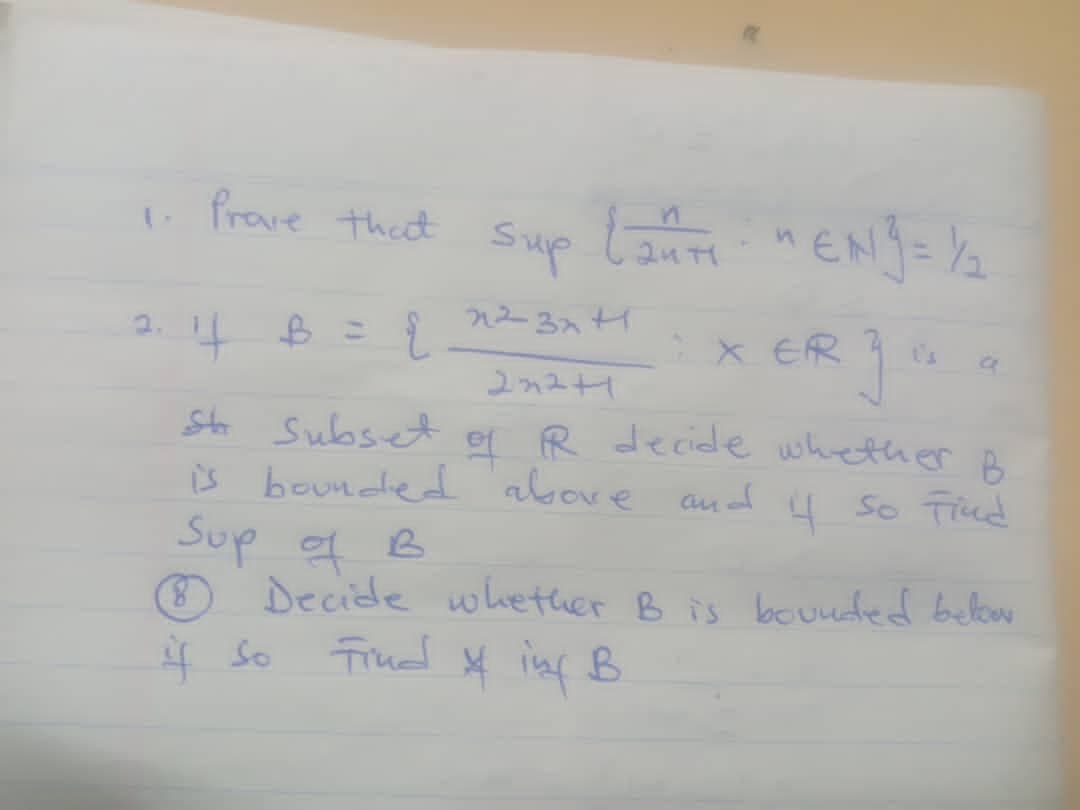 1. Prove that Sup { n/2n+1 : n ∈ ℕ } = 1/2
2. if B = { x2-3x+1 / 2x2+1 : x ∈ ℝ } is a
subset of ℝ decide whether B
is bounded above and if so Find
Sup of B
⑧ Decide whether B is bounded below
if so Find inf B